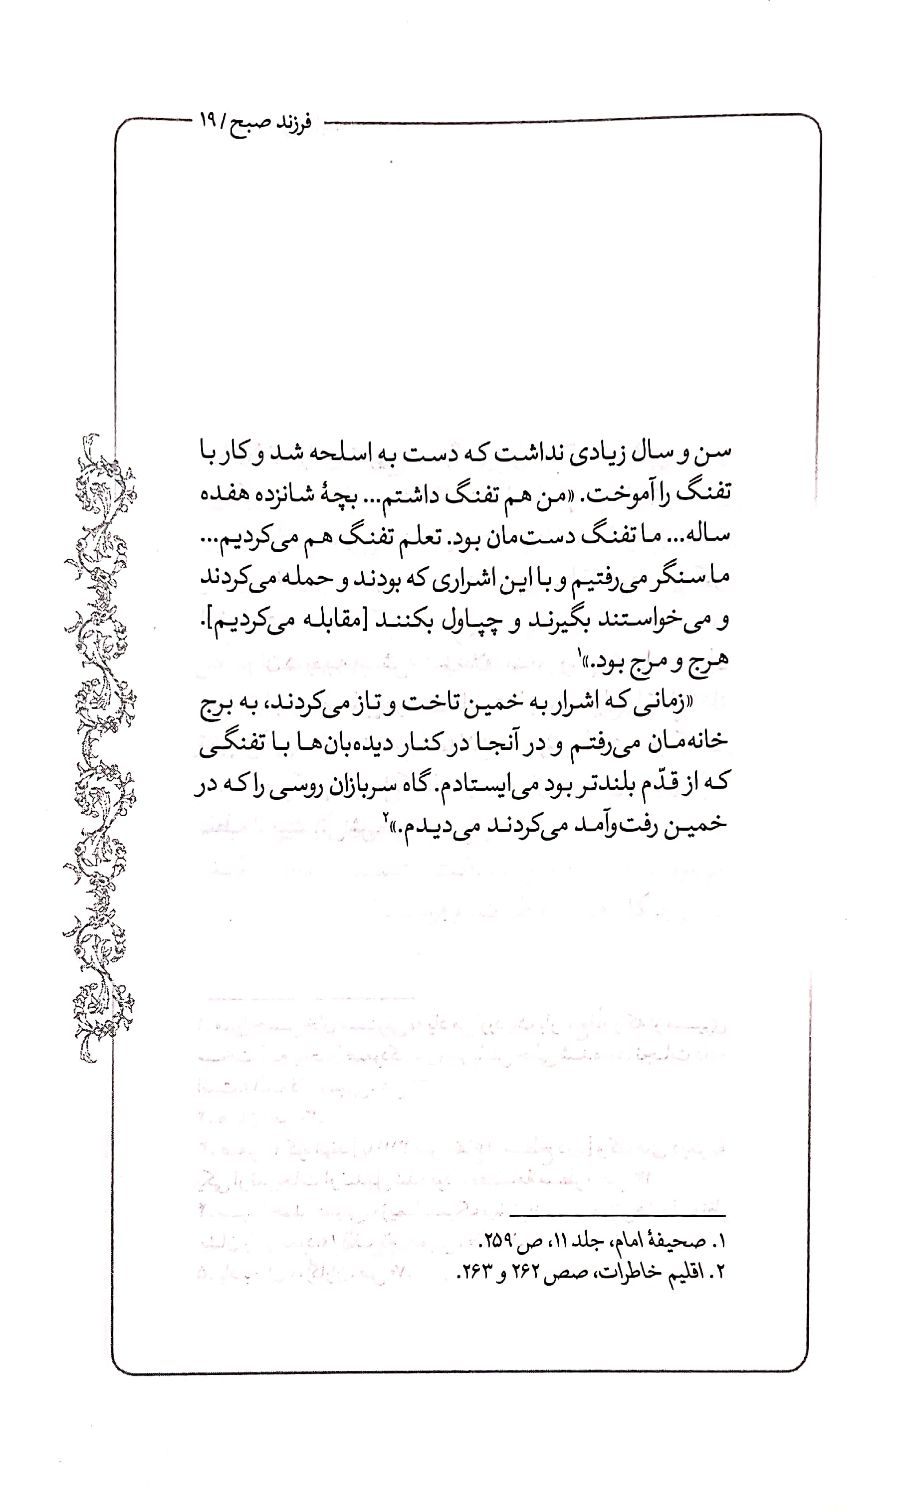 فرزند صبح / ۱۹
سن و سال زیادی نداشت که دست به اسلحه شد و کار با
تفنگ را آموخت. «من هم تفنگ داشتم... بچهٔ شانزده هفده
ساله... ما تفنگ دست‌مان بود. تعلم تفنگ هم می‌کردیم...
ما سنگر می‌رفتیم و با این اشراری که بودند و حمله می‌کردند
و می‌خواستند بگیرند و چپاول بکنند [مقابله می‌کردیم].
هرج و مرج بود.»۱
«زمانی که اشرار به خمین تاخت و تاز می‌کردند، به برج
خانه‌مان می‌رفتم و در آنجا در کنار دیده‌بان‌ها با تفنگی
که از قدّم بلندتر بود می‌ایستادم. گاه سربازان روسی را که در
خمین رفت‌وآمد می‌کردند می‌دیدم.»۲
۱. صحیفهٔ امام، جلد ۱۱، ص ۲۵۹.
۲. اقلیم خاطرات، صص ۲۶۲ و ۲۶۳.